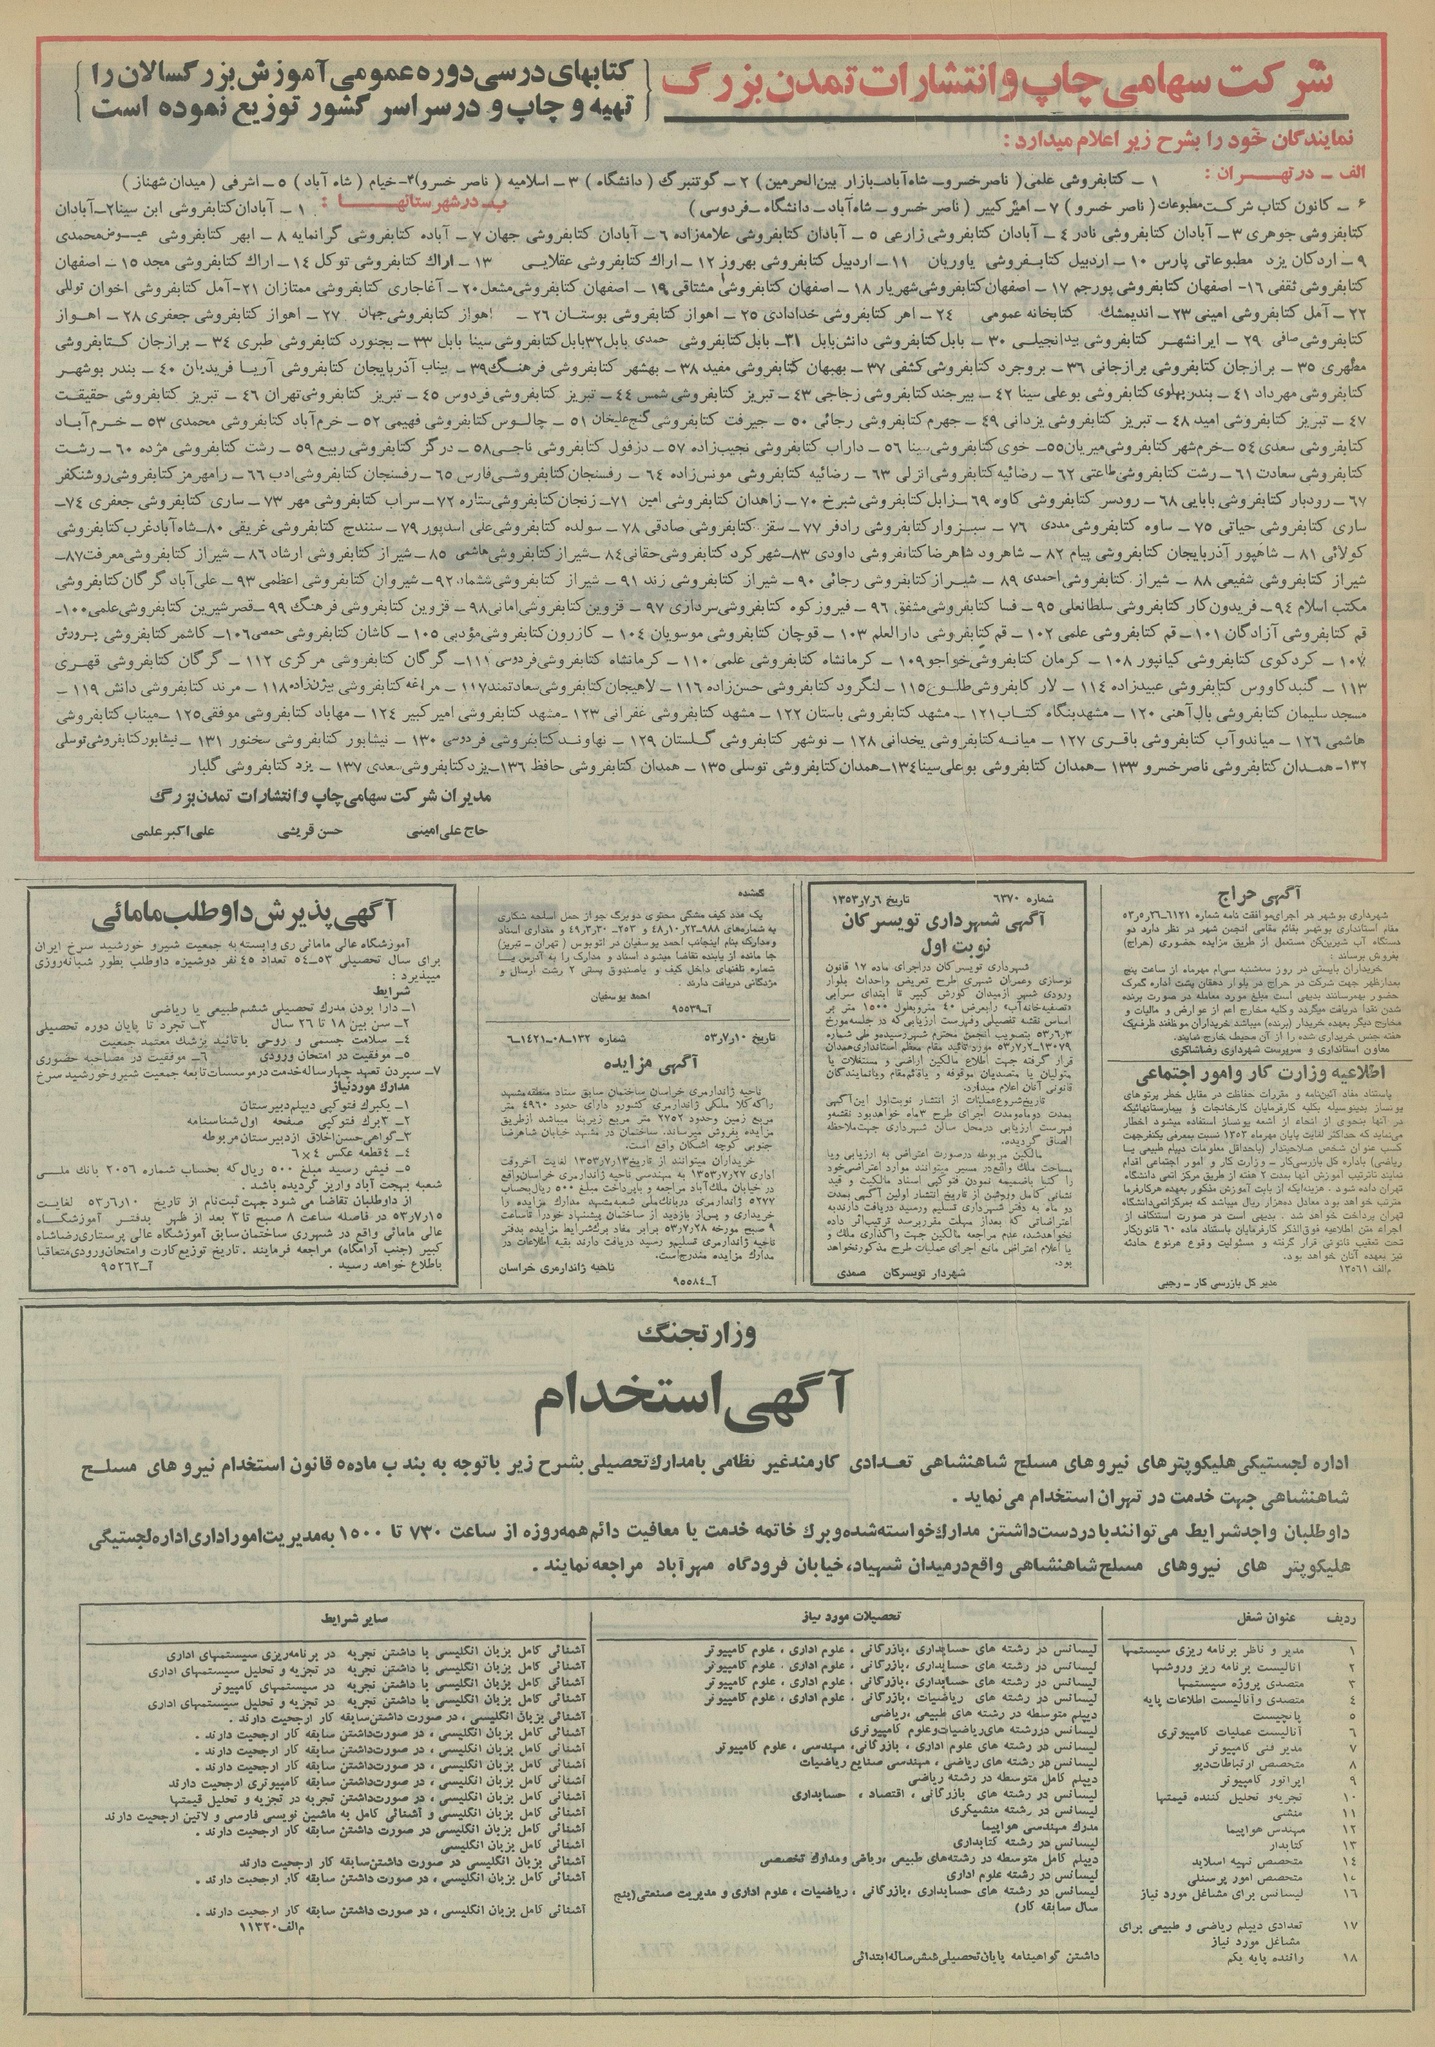 شرکت سهامی چاپ و انتشارات تمدن بزرگ
کتابهای درسی دوره عمومی آموزش بزرگسالان را
تهیه و چاپ و در سراسر کشور توزیع نموده است
نمایندگان خود را بشرح زیر اعلام میدارد :
الف ــ در تهران : ۱ ــ کتابفروشی علمی ( ناصر خسرو ــ شاه‌آباد ــ بازار بین‌الحرمین ) ۲ ــ گوتنبرگ ( دانشگاه ) ۳ ــ اسلامیه ( ناصر خسرو ) ۴ــ خیام ( شاه آباد ) ۵ ــ اشرفی ( میدان شهناز )
۶ ــ کانون کتاب شرکت مطبوعات ( ناصر خسرو ) ۷ ــ امیر کبیر ( ناصر خسرو ــ شاه‌آباد ــ دانشگاه ــ فردوسی ) ب ــ در شهرستانها : ۱ ــ آبادان کتابفروشی ابن سینا ۲ــ آبادان
کتابفروشی جوهری ۳ ــ آبادان کتابفروشی نادر ۴ ــ آبادان کتابفروشی زارعی ۵ ــ آبادان کتابفروشی علامه‌زاده ۶ ــ آبادان کتابفروشی جهان ۷ ــ آباده کتابفروشی گرانمایه ۸ ــ ابهر کتابفروشی عیوض محمدی
۹ ــ اردکان یزد مطبوعاتی پارس ۱۰ ــ اردبیل کتابفروشی یاوریان ۱۱ ــ اردبیل کتابفروشی بهروز ۱۲ ــ اراک کتابفروشی عقلایی ۱۳ ــ اراک کتابفروشی توکل ۱۴ ــ اراک کتابفروشی مجد ۱۵ ــ اصفهان
کتابفروشی ثقفی ۱۶ــ اصفهان کتابفروشی پورجم ۱۷ ــ اصفهان کتابفروشی شهریار ۱۸ ــ اصفهان کتابفروشی مشتاقی ۱۹ ــ اصفهان کتابفروشی مشعل ۲۰ ــ آغاجاری کتابفروشی ممتازان ۲۱ــ آمل کتابفروشی اخوان توللی
۲۲ ــ آمل کتابفروشی امینی ۲۳ ــ اندیمشک کتابخانه عمومی ۲۴ ــ اهر کتابفروشی خدادادی ۲۵ ــ اهواز کتابفروشی بوستان ۲۶ ــ اهواز کتابفروشی جهان ۲۷ ــ اهواز کتابفروشی جعفری ۲۸ ــ اهواز
کتابفروشی صافی ۲۹ ــ ایرانشهر کتابفروشی بیدانجیلی ۳۰ ــ بابل کتابفروشی دانش بابل ۳۱ ــ بابل کتابفروشی حمدی بابل ۳۲ بابل کتابفروشی سینا بابل ۳۳ ــ بجنورد کتابفروشی طبری ۳۴ ــ برازجان کتابفروشی
مطهری ۳۵ ــ برازجان کتابفروشی برازجانی ۳۶ ــ بروجرد کتابفروشی کشفی ۳۷ ــ بهبهان کتابفروشی مفید ۳۸ ــ بهشهر کتابفروشی فرهنگ ۳۹ ــ بیناب آذربایجان کتابفروشی آریا فریدیان ۴۰ ــ بندر بوشهر
کتابفروشی مهرداد ۴۱ ــ بندر پهلوی کتابفروشی بوعلی سینا ۴۲ ــ بیرجند کتابفروشی زجاجی ۴۳ ــ تبریز کتابفروشی شمس ۴۴ ــ تبریز کتابفروشی فردوس ۴۵ ــ تبریز کتابفروشی تهران ۴۶ ــ تبریز کتابفروشی حقیقت
۴۷ ــ تبریز کتابفروشی امید ۴۸ ــ تبریز کتابفروشی یزدانی ۴۹ ــ جهرم کتابفروشی رجائی ۵۰ ــ جیرفت کتابفروشی گنج‌علیخان ۵۱ ــ چالوس کتابفروشی فهیمی ۵۲ ــ خرم‌آباد کتابفروشی محمدی ۵۳ ــ خرم‌آباد
کتابفروشی سعدی ۵۴ ــ خرمشهر کتابفروشی میریان ۵۵ــ خوی کتابفروشی سینا ۵۶ ــ داراب کتابفروشی نجیب‌زاده ۵۷ ــ دزفول کتابفروشی ناجی ۵۸ ــ درگز کتابفروشی ربیع ۵۹ ــ رشت کتابفروشی مژده ۶۰ ــ رشت
کتابفروشی سعادت ۶۱ ــ رشت کتابفروشی طاعتی ۶۲ ــ رضائیه کتابفروشی انزلی ۶۳ ــ رضائیه کتابفروشی مونس‌زاده ۶۴ ــ رفسنجان کتابفروشی فارس ۶۵ ــ رفسنجان کتابفروشی ادب ۶۶ ــ رامهرمز کتابفروشی روشنگر
۶۷ ــ رودبار کتابفروشی بابایی ۶۸ ــ رودسر کتابفروشی کاوه ۶۹ ــ زابل کتابفروشی شیرخ ۷۰ ــ زاهدان کتابفروشی امین ۷۱ ــ زنجان کتابفروشی ستاره ۷۲ ــ سراب کتابفروشی مهر ۷۳ ــ ساری کتابفروشی جعفری ۷۴ ــ
ساری کتابفروشی حیاتی ۷۵ ــ ساوه کتابفروشی مددی ۷۶ ــ سبزوار کتابفروشی رادفر ۷۷ ــ سقز کتابفروشی صادقی ۷۸ ــ سولده کتابفروشی علی اسدپور ۷۹ ــ سنندج کتابفروشی غریقی ۸۰ ــ شاه‌آباد غرب کتابفروشی
کولائی ۸۱ ــ شاهپور آذربایجان کتابفروشی پیام ۸۲ ــ شاهرود شاهرضا کتابفروشی داودی ۸۳ــ شهرکرد کتابفروشی حقانی ۸۴ ــ شیراز کتابفروشی هاشمی ۸۵ ــ شیراز کتابفروشی ارشاد ۸۶ ــ شیراز کتابفروشی معرفت ۸۷ــ
شیراز کتابفروشی شفیعی ۸۸ ــ شیراز کتابفروشی احمدی ۸۹ ــ شیراز کتابفروشی رجائی ۹۰ ــ شیراز کتابفروشی زند ۹۱ ــ شیراز کتابفروشی ششماد ۹۲ ــ شیروان کتابفروشی اعظمی ۹۳ ــ علی‌آباد گرگان کتابفروشی
مکتب اسلام ۹۴ ــ فریدون‌کنار کتابفروشی سلطانعلی ۹۵ ــ فسا کتابفروشی مشفق ۹۶ ــ فیروزکوه کتابفروشی سرداری ۹۷ ــ قزوین کتابفروشی امانی ۹۸ ــ قزوین کتابفروشی فرهنگ ۹۹ ــ قصرشیرین کتابفروشی علمی ۱۰۰ــ
قم کتابفروشی آزادگان ۱۰۱ ــ قم کتابفروشی علمی ۱۰۲ ــ قم کتابفروشی دارالعلم ۱۰۳ ــ قوچان کتابفروشی موسویان ۱۰۴ ــ کازرون کتابفروشی مؤدبی ۱۰۵ ــ کاشان کتابفروشی حمصی ۱۰۶ــ کاشمر کتابفروشی پرورش
۱۰۷ ــ کردکوی کتابفروشی کیانپور ۱۰۸ ــ کرمان کتابفروشی خواجو ۱۰۹ ــ کرمانشاه کتابفروشی علمی ۱۱۰ ــ کرمانشاه کتابفروشی فردوسی ۱۱۱ــ گرگان کتابفروشی مرکزی ۱۱۲ ــ گرگان کتابفروشی قهری
۱۱۳ ــ گنبدکاووس کتابفروشی عبیدزاده ۱۱۴ ــ لار کتابفروشی طلوع ۱۱۵ ــ لنگرود کتابفروشی حسن‌زاده ۱۱۶ ــ لاهیجان کتابفروشی سعادتمند ۱۱۷ ــ مراغه کتابفروشی بیژن‌زاده ۱۱۸ ــ مرند کتابفروشی دانش ۱۱۹ ــ
مسجد سلیمان کتابفروشی بال‌آهنی ۱۲۰ ــ مشهد بنگاه کتاب ۱۲۱ ــ مشهد کتابفروشی باستان ۱۲۲ ــ مشهد کتابفروشی غفرانی ۱۲۳ ــ مشهد کتابفروشی امیرکبیر ۱۲۴ ــ مهاباد کتابفروشی موفقی ۱۲۵ ــ میناب کتابفروشی
هاشمی ۱۲۶ ــ میاندوآب کتابفروشی باقری ۱۲۷ ــ میانه کتابفروشی یخدانی ۱۲۸ ــ نوشهر کتابفروشی گلستان ۱۲۹ ــ نهاوند کتابفروشی فردوسی ۱۳۰ ــ نیشابور کتابفروشی سخنور ۱۳۱ ــ نیشابور کتابفروشی توسلی
۱۳۲ــ همدان کتابفروشی ناصر خسرو ۱۳۳ ــ همدان کتابفروشی بوعلی سینا ۱۳۴ــ همدان کتابفروشی توسلی ۱۳۵ ــ همدان کتابفروشی حافظ ۱۳۶ــ یزد کتابفروشی سعدی ۱۳۷ ــ یزد کتابفروشی گلبار
مدیران شرکت سهامی چاپ و انتشارات تمدن بزرگ
حاج علی امینی حسن قریشی علی اکبر علمی
آگهی حراج
شهرداری بوشهر در اجرای موافقت نامه شماره ۶۱۲۱ــ۵۳٫۵٫۲۶
مقام استانداری بوشهر بقائم مقامی انجمن شهر در نظر دارد دو
دستگاه آب شیرین‌کن مستعمل از طریق مزایده حضوری ( حراج )
بفروش برساند :
خریداران بایستی در روز سه‌شنبه سی‌ام مهرماه از ساعت پنج
بعدازظهر جهت شرکت در حراج در بلوار دهقان پشت اداره گمرک
حضور بهمرسانند بدیهی است مبلغ مورد معامله در صورت برنده
شدن نقدا دریافت میگردد و کلیه مخارج اعم از عوارض و مالیات و
مخارج دیگر بعهده خریدار ( برنده ) میباشد خریداران موظفند ظرف یک
هفته جنس خریداری شده را از آن محیط خارج نمایند.
معاون استانداری و سرپرست شهرداری رضا شاکری
اطلاعیه وزارت کار و امور اجتماعی
باستناد مفاد آئین‌نامه و مقررات حفاظت در مقابل خطر پرتوهای
یونساز بدینوسیله بکلیه کارفرمایان کارخانجات و بیمارستانهائیکه
در آنها بنحوی از انحاء از اشعه یونساز استفاده میشود اخطار
می‌نماید که حداکثر لغایت پایان مهرماه ۱۳۵۳ نسبت بمعرفی یکنفر جهت
کسب عنوان شخص صلاحیتدار ( باحداقل معلومات دیپلم طبیعی یا
ریاضی ) باداره کل بازرسی کار ــ وزارت کار و امور اجتماعی اقدام
نمایند تا ترتیب آموزش آنها بمدت ۲ هفته از طریق مرکز اتمی دانشگاه
تهران داده شود . هزینه‌ایکه از بابت آموزش مذکور بعهده هر کارفرما
مترتب خواهد بود معادل ده‌هزار ریال میباشد که بمرکز اتمی دانشگاه
تهران پرداخت خواهد شد . بدیهی است در صورت استنکاف از
اجراء متن اطلاعیه فوق‌الذکر کارفرمایان باستناد ماده ۶۰ قانون کار
تحت تعقیب قانونی قرار گرفته و مسئولیت وقوع هر نوع حادثه
نیز بعهده آنان خواهد بود.
م‌الف ۱۳۵۶۱
مدیر کل بازرسی کار ــ رجبی
شماره ۶۳۷۰ تاریخ ۱۳۵۳٫۷٫۶
آگهی شهرداری تویسرکان
نوبت اول
شهرداری تویسرکان در اجرای ماده ۱۷ قانون
نوسازی و عمران شهری طرح تعریض و احداث بلوار
ورودی شهر از میدان کورش کبیر تا ابتدای سرابی
«تصفیه‌خانه آب» را بعرض ۴۰ متر و بطول ۱۵۰۰ متر بر
اساس نقشه تفصیلی و فهرست ارزیابی که در جلسه مورخ
۵۳٫۶٫۳ بتصویب انجمن محترم شهر رسیده و طی شماره
۱۳۰۷۹ــ۵۳٫۷٫۲ مورد تائید مقام معظم استانداری همدان
قرار گرفته جهت اطلاع مالکین اراضی و مستغلات یا
متولیان یا متصدیان موقوفه و یا قائم‌مقام و یا نمایندگان
قانونی آنان اعلام میدارد.
تاریخ شروع عملیات از انتشار نوبت اول این آگهی
بمدت دوماه و مدت اجرای طرح ۳ ماه خواهد بود نقشه و
فهرست ارزیابی در محل سالن شهرداری جهت ملاحظه
الصاق گردیده.
مالکین مربوطه در صورت اعتراض به ارزیابی و یا
مساحت ملک واقع در مسیر میتوانند موارد اعتراضی خود
را کتبا بانضمیمه نمودن فتوکپی اسناد مالکیت و قید
نشانی کامل و روشن از تاریخ انتشار اولین آگهی بمدت
دو ماه به دفتر شهرداری تسلیم و رسید دریافت دارند به
اعتراضاتی که بعد از مهلت مقرر برسد ترتیب‌اثر داده
نخواهد شد، عدم مراجعه مالکین جهت واگذاری ملک و
یا اعلام اعتراض مانع اجرای عملیات طرح مذکور نخواهد
بود.
شهردار تویسرکان صمدی
گمشده
یک عدد کیف مشکی محتوی دو برگ جواز حمل اسلحه شکاری
به شماره‌های ۹۸۸ــ۴۸٫۱۰٫۲۳ و ۲۵۳ــ۴۹٫۳٫۳۰ و مقداری اسناد
و مدارک بنام اینجانب احمد یوسفیان در اتوبوس ( تهران ــ تبریز )
جا مانده از یابنده تقاضا میشود اسناد و مدارک را به آدرس یا
شماره تلفنهای داخل کیف و یا صندوق پستی ۲ رشت ارسال و
مژدگانی دریافت دارند .
احمد یوسفیان
آــ۹۵۵۳۹
تاریخ ۵۳٫۷٫۱۰ شماره ۱۳۲ــ۰۸ــ۱۴۲۱ــ۶
آگهی مزایده
ناحیه ژاندارمری خراسان ساختمان سابق ستاد منطقه مشهد
را که کلا ملکی ژاندارمری کشور و دارای حدود ۴۹۶۰ متر
مربع زمین و حدود ۲۷۵۲ متر مربع زیربنا میباشد از طریق
مزایده بفروش میرساند. ساختمان در مشهد خیابان شاهرضا
جنوبی کوچه اشکان واقع است.
خریداران میتوانند از تاریخ ۱۳۵۳٫۷٫۱۳ لغایت آخر وقت
اداری ۱۳۵۳٫۷٫۲۷ به مهندسی ناحیه ژاندارمری خراسان واقع
در خیابان ملک‌آباد مراجعه و با پرداخت مبلغ ۵۰۰ ریال بحساب
۵۲۷۷ ژاندارمری در بانک ملی شعبه مشهد مدارک مزایده را
خریداری و پس از بازدید از ساختمان پیشنهاد خود را تا ساعت
۹ صبح مورخه ۵۳٫۷٫۲۸ برابر مفاد برگ شرایط مزایده بدفتر
ناحیه ژاندارمری تسلیم و رسید دریافت دارند بقیه اطلاعات در
مدارک مزایده مندرج است.
ناحیه ژاندارمری خراسان
آــ۹۵۵۸۴
آگهی پذیرش داوطلب مامائی
آموزشگاه عالی مامائی ری وابسته به جمعیت شیر و خورشید سرخ ایران
برای سال تحصیلی ۵۳ــ۵۴ تعداد ۴۵ نفر دوشیزه داوطلب بطور شبانه‌روزی
میپذیرد :
شرایط
۱ــ دارا بودن مدرک تحصیلی ششم طبیعی یا ریاضی
۲ــ سن بین ۱۸ تا ۲۶ سال ۳ــ تجرد تا پایان دوره تحصیلی
۴ــ سلامت جسمی و روحی با تائید پزشک معتمد جمعیت
۵ــ موفقیت در امتحان ورودی ۶ــ موفقیت در مصاحبه حضوری
۷ــ سپردن تعهد چهار ساله خدمت در موسسات تابعه جمعیت شیر و خورشید سرخ
مدارک مورد نیاز
۱ــ یکبرگ فتوکپی دیپلم دبیرستان
۲ــ ۳ برگ فتوکپی صفحه اول شناسنامه
۳ــ گواهی حسن اخلاق از دبیرستان مربوطه
۴ــ ۴ قطعه عکس ۴×۶
۵ــ فیش رسید مبلغ ۵۰۰ ریال که بحساب شماره ۲۰۵۶ بانک ملی
شعبه بهجت آباد واریز گردیده باشد .
از داوطلبان تقاضا می شود جهت ثبت‌نام از تاریخ ۵۳٫۷٫۱۰ لغایت
۵۳٫۷٫۱۵ در فاصله ساعت ۸ صبح تا ۳ بعد از ظهر بدفتر آموزشگاه
عالی مامائی واقع در شهرری ساختمان سابق آموزشگاه عالی پرستاری رضاشاه
کبیر ( جنب آرامگاه ) مراجعه فرمایند . تاریخ توزیع کارت و امتحان ورودی متعاقبا
باطلاع خواهد رسید . آــ۹۵۲۶۲
وزارت جنگ
آگهی استخدام
اداره لجستیکی هلیکوپترهای نیروهای مسلح شاهنشاهی تعدادی کارمند غیر نظامی با مدارک تحصیلی بشرح زیر با توجه به بند ب ماده ۵ قانون استخدام نیروهای مسلح
شاهنشاهی جهت خدمت در تهران استخدام می نماید .
داوطلبان واجد شرایط می توانند با در دست داشتن مدارک خواسته شده و برگ خاتمه خدمت یا معافیت دائم همه روزه از ساعت ۷۳۰ تا ۱۵۰۰ به مدیریت امور اداری اداره لجستیکی
هلیکوپتر های نیروهای مسلح شاهنشاهی واقع در میدان شهیاد، خیابان فرودگاه مهرآباد مراجعه نمایند .
ردیف عنوان شغل تحصیلات مورد نیاز سایر شرایط
۱ مدیر و ناظر برنامه ریزی سیستمها لیسانس در رشته های حسابداری ، بازرگانی ، علوم اداری ، علوم کامپیوتر آشنائی کامل بزبان انگلیسی با داشتن تجربه در برنامه‌ریزی سیستمهای اداری
۲ آنالیست برنامه ریز و روشها لیسانس در رشته های حسابداری ، بازرگانی ، علوم اداری ، علوم کامپیوتر آشنائی کامل بزبان انگلیسی با داشتن تجربه در تجزیه و تحلیل سیستمهای اداری
۳ متصدی پروژه سیستمها لیسانس در رشته های حسابداری ، بازرگانی ، علوم اداری ، علوم کامپیوتر آشنائی کامل بزبان انگلیسی با داشتن تجربه در سیستمهای کامپیوتر
۴ متصدی و آنالیست اطلاعات پایه لیسانس در رشته های ریاضیات ، بازرگانی ، علوم اداری ، علوم کامپیوتر آشنائی کامل بزبان انگلیسی با داشتن تجربه در تجزیه و تحلیل سیستمهای اداری
۵ پانچیست دیپلم متوسطه در رشته های طبیعی ، ریاضی آشنائی کامل بزبان انگلیسی ، در صورت داشتن سابقه کار ارجحیت دارند .
۶ آنالیست عملیات کامپیوتری لیسانس در رشته های ریاضیات و علوم کامپیوتری آشنائی کامل بزبان انگلیسی ، در صورت داشتن سابقه کار ارجحیت دارند .
۷ مدیر فنی کامپیوتر لیسانس در رشته های علوم اداری ، بازرگانی، مهندسی ، علوم کامپیوتر آشنائی کامل بزبان انگلیسی ، در صورت داشتن سابقه کار ارجحیت دارند .
۸ متخصص ارتباطات دیو لیسانس در رشته های ریاضی ، مهندسی صنایع ریاضیات آشنائی کامل بزبان انگلیسی ، در صورت داشتن سابقه کار ارجحیت دارند .
۹ اپراتور کامپیوتر دیپلم کامل متوسطه در رشته ریاضی آشنائی کامل بزبان انگلیسی ، در صورت داشتن سابقه کامپیوتری ارجحیت دارند
۱۰ تجزیه و تحلیل کننده قیمتها لیسانس در رشته های بازرگانی ، اقتصاد ، حسابداری آشنائی کامل بزبان انگلیسی در صورت داشتن تجربه در تجزیه و تحلیل قیمتها
۱۱ منشی لیسانس در رشته منشیگری آشنائی کامل بزبان انگلیسی و آشنائی کامل به ماشین نویسی فارسی و لاتین ارجحیت دارند
۱۲ مهندس هواپیما مدرک مهندسی هواپیما آشنائی کامل بزبان انگلیسی در صورت داشتن سابقه کار ارجحیت دارند .
۱۳ کتابدار لیسانس در رشته کتابداری آشنائی کامل بزبان انگلیسی
۱۴ متخصص تهیه اسلاید دیپلم کامل متوسطه در رشته‌های طبیعی ،ریاضی و مدارک تخصصی آشنائی کامل بزبان انگلیسی در صورت داشتن سابقه کار ارجحیت دارند
۱۵ متخصص امور پرسنلی لیسانس در رشته علوم اداری آشنائی کامل بزبان انگلیسی ، در صورت داشتن سابقه کار ارجحیت دارند .
۱۶ لیسانس برای مشاغل مورد نیاز لیسانس در رشته های حسابداری ، بازرگانی ، ریاضیات ، علوم اداری و مدیریت صنعتی (پنج
سال سابقه کار) آشنائی کامل بزبان انگلیسی ، در صورت داشتن سابقه کار ارجحیت دارند .
۱۷ تعدادی دیپلم ریاضی و طبیعی برای م‌الف ۱۱۳۲۰
مشاغل مورد نیاز
۱۸ راننده پایه یکم داشتن گواهینامه پایان تحصیلی شش ساله ابتدائی